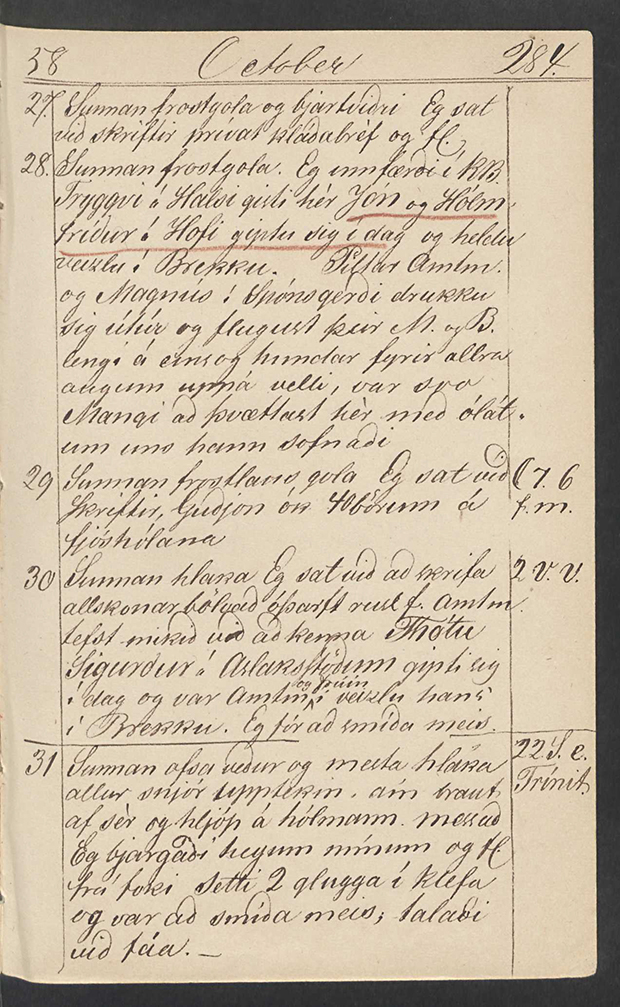 58 October 284.
27. Sunnan frostgola og bjartviðri Eg sat
við skriftir privat kláðabréf og fl.
28. Sunnan frostgola. Eg innfærði í KB.
Tryggvi á Halsi gisti hér Jón og Hólm-
fríður á Hofi giptu sig í dag og heldu
veizlu í Brekku. Piltar Amtm.
og Magnús í Spónsgerði drukku
sig útúr og flugust þeir M. og B.
lengi á eins og hundar fyrir allra
augum uppá velli, var svo
Mangi að þvættast hér með ólát-
um uns hann sofnaði
29 Sunnan frostlaus gola Eg sat við
skriftir, Guðjón ók 40 börum á
fjóshólana
C 7. 6
f. m.
30 Sunnan hlaka Eg sat við að skrifa
allskonar bölvað óþarft rusl f. Amtm.
tefst mikið við að kenna Thotu
Sigurður á Aslaksstöðum gipti sig
í dag og var Amtm og frúin í veizlu hans
í Brekku. Eg fór að smíða meis.
2 V. V.
31 Sunnan ofsa veður og mesta hláka
allur snjór upptekin, ain braut
af sér og hljóp á hólmann. messað
Eg bjargaði heyum mínum og fl
frá foki setti 2 glugga í klefa
og var að smíða meis; talaði
við fáa. —
22 S. e.
Trínit.